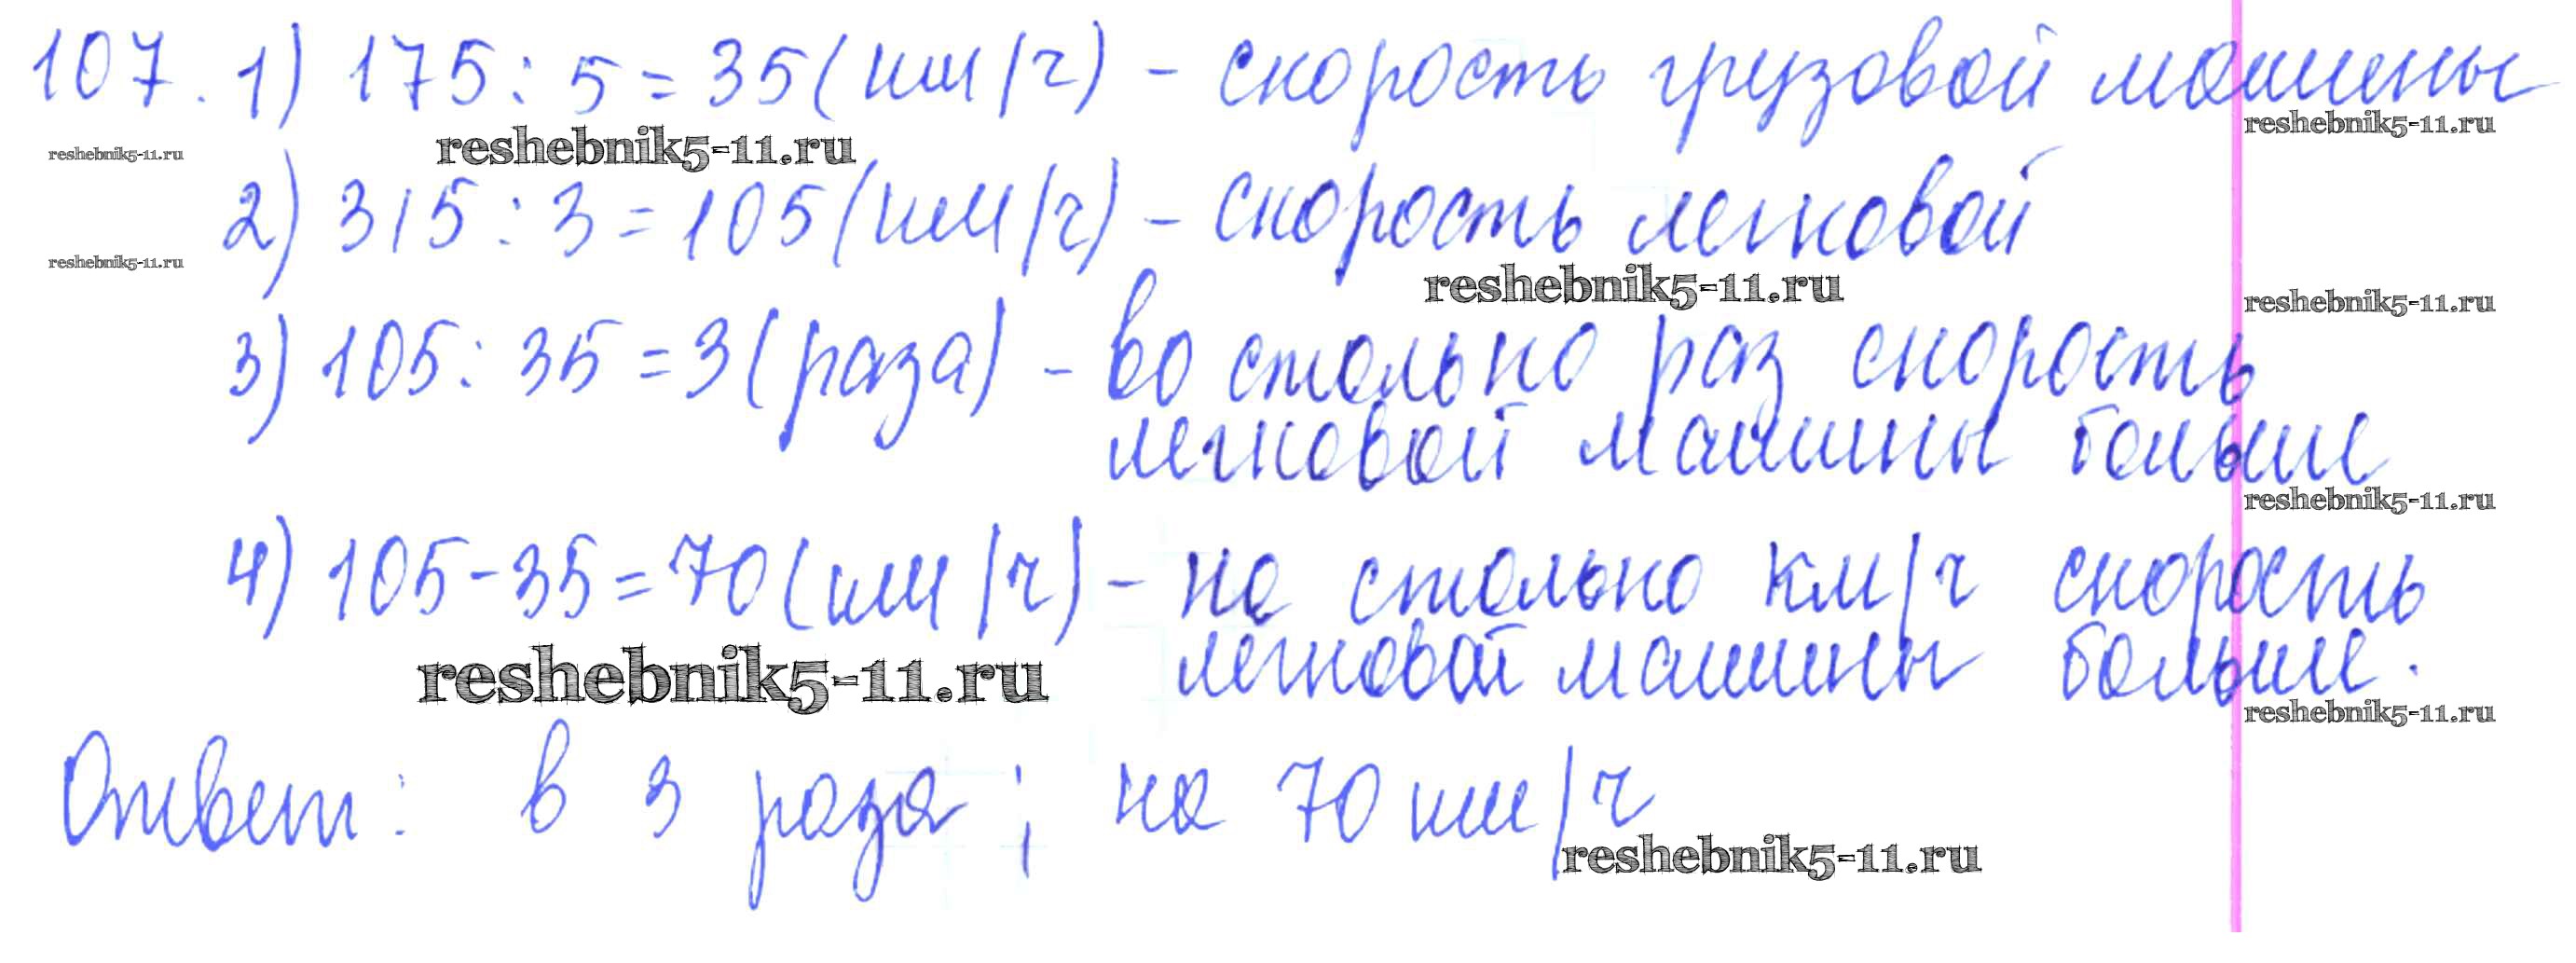 107. 1) 175 : 5 = 35 (км/ч) - скорость грузовой машины
reshebnik5-11.ru
reshebnik5-11.ru reshebnik5-11.ru
2) 315 : 3 = 105 (км/ч) - скорость легковой
reshebnik5-11.ru
reshebnik5-11.ru
reshebnik5-11.ru
3) 105 : 35 = 3 (раза) - во столько раз скорость
легковой машины больше
reshebnik5-11.ru
4) 105 - 35 = 70 (км/ч) - на столько км/ч скорость
легковой машины больше.
reshebnik5-11.ru
reshebnik5-11.ru
Ответ: в 3 раза; на 70 км/ч
reshebnik5-11.ru